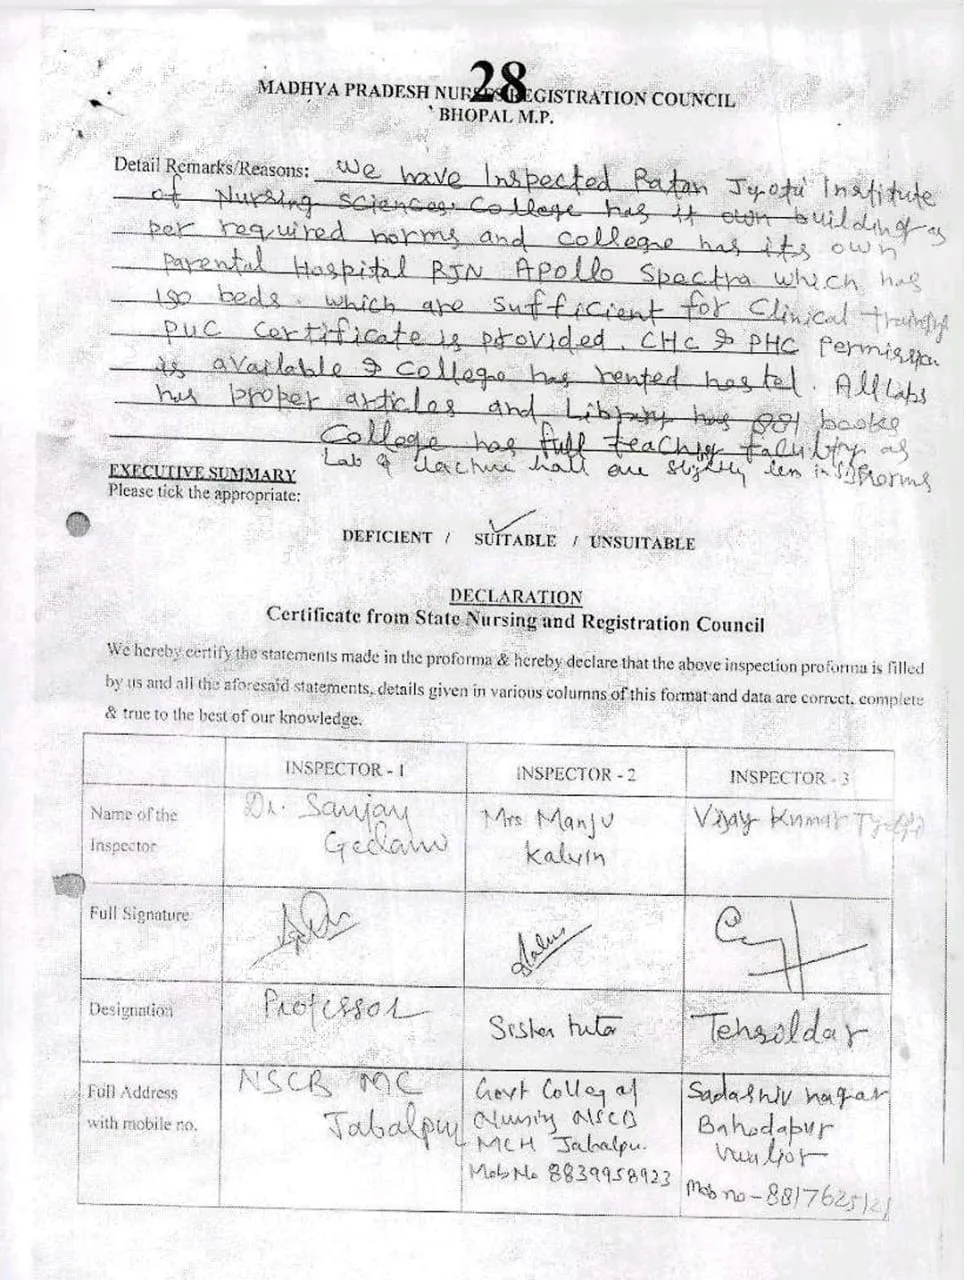 28
MADHYA PRADESH NURSES REGISTRATION COUNCIL
BHOPAL M.P.
Detail Remarks/Reasons: We have Inspected Ratan Jyoti Institute
of Nursing Sciences. College has it own building as
per required norms and college has its own
parental Hospital RJN Apollo Spectra which has
150 beds. which are sufficient for Clinical training
PUC Certificate is provided. CHC & PHC Permission
is available & College has rented hostel. All Labs
has proper articles and Library has 881 books
College has full teaching faculty as
Lab & lecture hall are slightly less in norms
EXECUTIVE SUMMARY
Please tick the appropriate:
DEFICIENT / SUITABLE / UNSUITABLE
DECLARATION
Certificate from State Nursing and Registration Council
We hereby certify the statements made in the proforma & hereby declare that the above inspection proforma is filled
by us and all the aforesaid statements, details given in various columns of this format and data are correct, complete
& true to the best of our knowledge.
INSPECTOR - 1 INSPECTOR - 2 INSPECTOR - 3
Name of the Inspector
Dr. Sanjay
Mrs Manju Kalvin
Vijay Kumar
Full Signature
Designation
Professor
Sister tutor
Tehsildar
Full Address
with mobile no.
NSCB MC
Jabalpur
Govt Colleg of
Nursing NSCB
MCH Jabalpur.
Mob No 8839958923
Sadashiv nagar
Bahodapur
Mob no - 8817625121